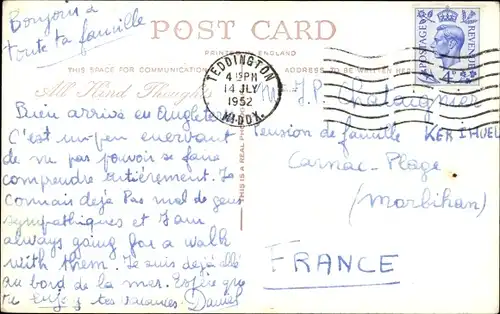 Bonjour à
toute ta famille
POST CARD
PRINTED ENGLAND
THIS SPACE FOR COMMUNICATION ADDRESS TO BE
All Kind Thoughts
THIS IS A REAL PHOTOGRAPH
TEDDINGTON
4 15 PM
14 JLY
1952
MIDDX.
POSTAGE REVENUE
4D
Bien arrivé en Angleterre
C'est un peu enervant
de ne pas pouvoir se faire
comprendre entièrement. Je
connais dejà Pas mal de gens
sympathiques et I am
always going for a walk
with them. Je suis dejà allé
au bord de la mer. Espère que
tu enjoy tes vacances. Daniel
J.P. Chataignier
Pension de famille KER IHUEL
Carnac-Plage
(Morbihan)
FRANCE